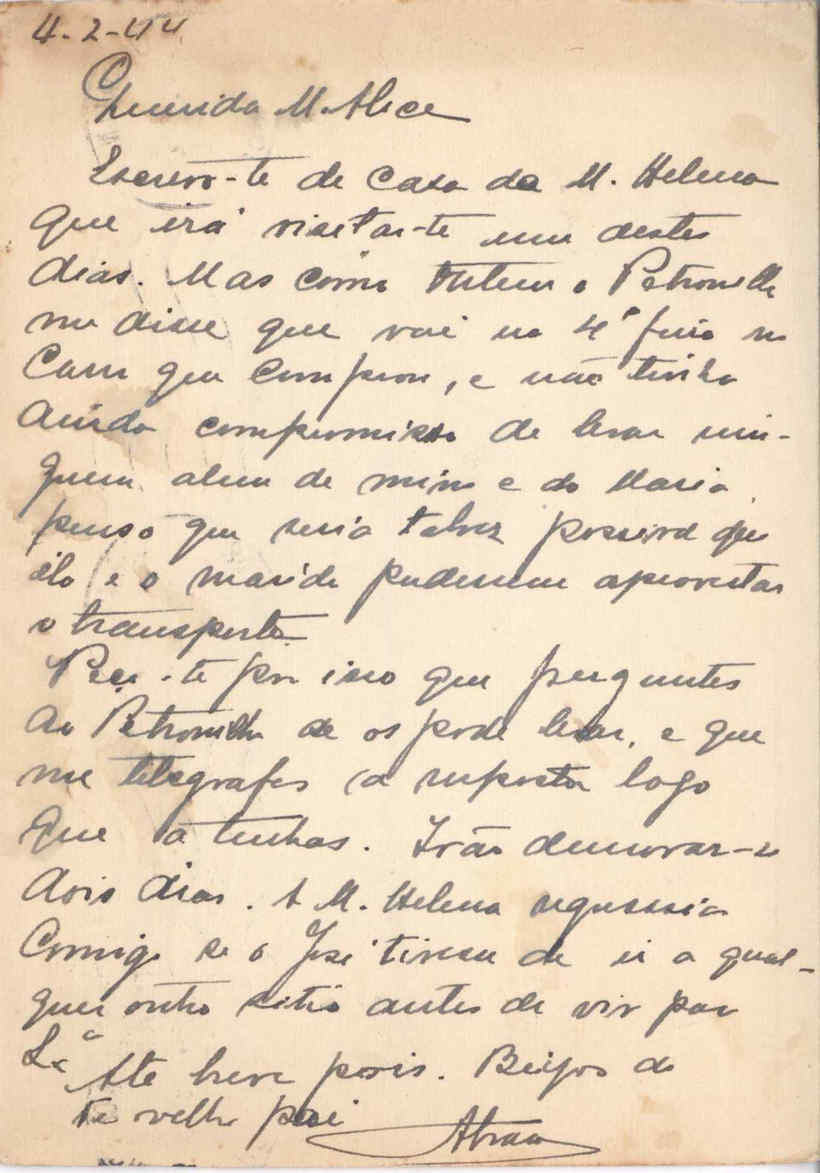 4-2-44
Querida M. Alice
Escrevo-te de casa da M. Helena
que irá visitar-te um destes
dias. Mas como ontem o Petronilho
me disse que vai na 4ª feira no
carro que comprou, e não tinha
ainda compromisso de levar nin-
guem alem de mim e da Maria,
penso que seria talvez possivel que
ela e o marido pudessem aproveitar
o transporte.
Peço-te por isso que perguntes
ao Petronilho se os pode levar, e que
me telegrafes a resposta logo
que a tenhas. Irão demorar-se
dois dias. A M. Helena regressaria
comigo se o José tivesse de ir a qual-
quer outro sitio antes de vir para
Lxª
Até breve pois. Beijos do
teu velho pai